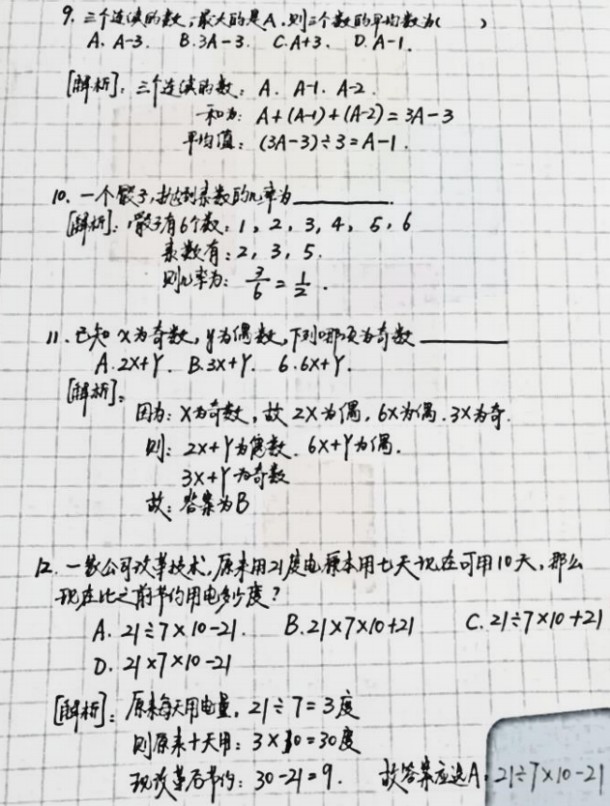 9. 三个连续的数,最大的是A,则三个数的平均数为( )
A. A-3. B. 3A-3. C. A+3. D. A-1.
[解析]: 三个连续的数: A. A-1. A-2.
和为: A+(A-1)+(A-2)=3A-3
平均值: (3A-3)÷3=A-1.
10. 一个骰子,抛到素数的几率为________.
[解析]: 骰子有6个数: 1, 2, 3, 4, 5, 6
素数有: 2, 3, 5.
则几率为: 3/6=1/2.
11. 已知 x为奇数, y为偶数, 下列哪项为奇数________
A. 2X+Y. B. 3X+Y. 6. 6X+Y.
[解析]:
因为: X为奇数, 故 2X为偶, 6X为偶. 3X为奇.
则: 2X+Y为偶数. 6X+Y为偶.
3X+Y为奇数
故: 答案为B
12. 一家公司改革技术, 原来用21度电原本用七天现在可用10天, 那么
现在比之前节约用电多少度?
A. 21÷7×10-21. B. 21×7×10+21 C. 21÷7×10+21
D. 21×7×10-21
[解析]: 原来每天用电量, 21÷7=3度
则原来十天用: 3×10=30度
现改革后节约: 30-21=9. 故答案应选A. 21÷7×10-21